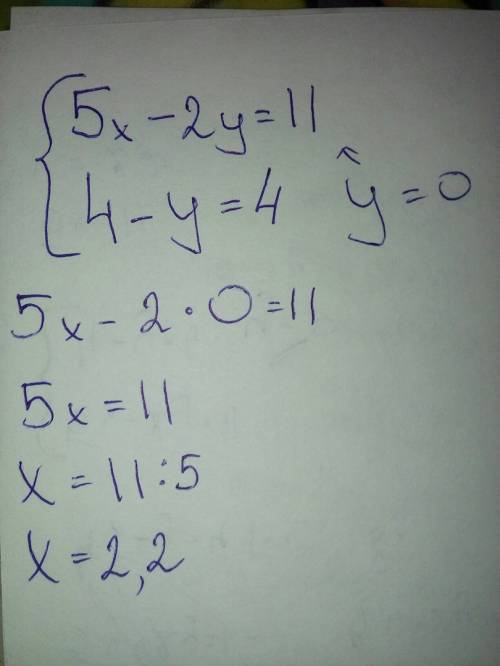 5x - 2y = 11
4 - y = 4 y = 0
5x - 2 · 0 = 11
5x = 11
x = 11 : 5
x = 2,2